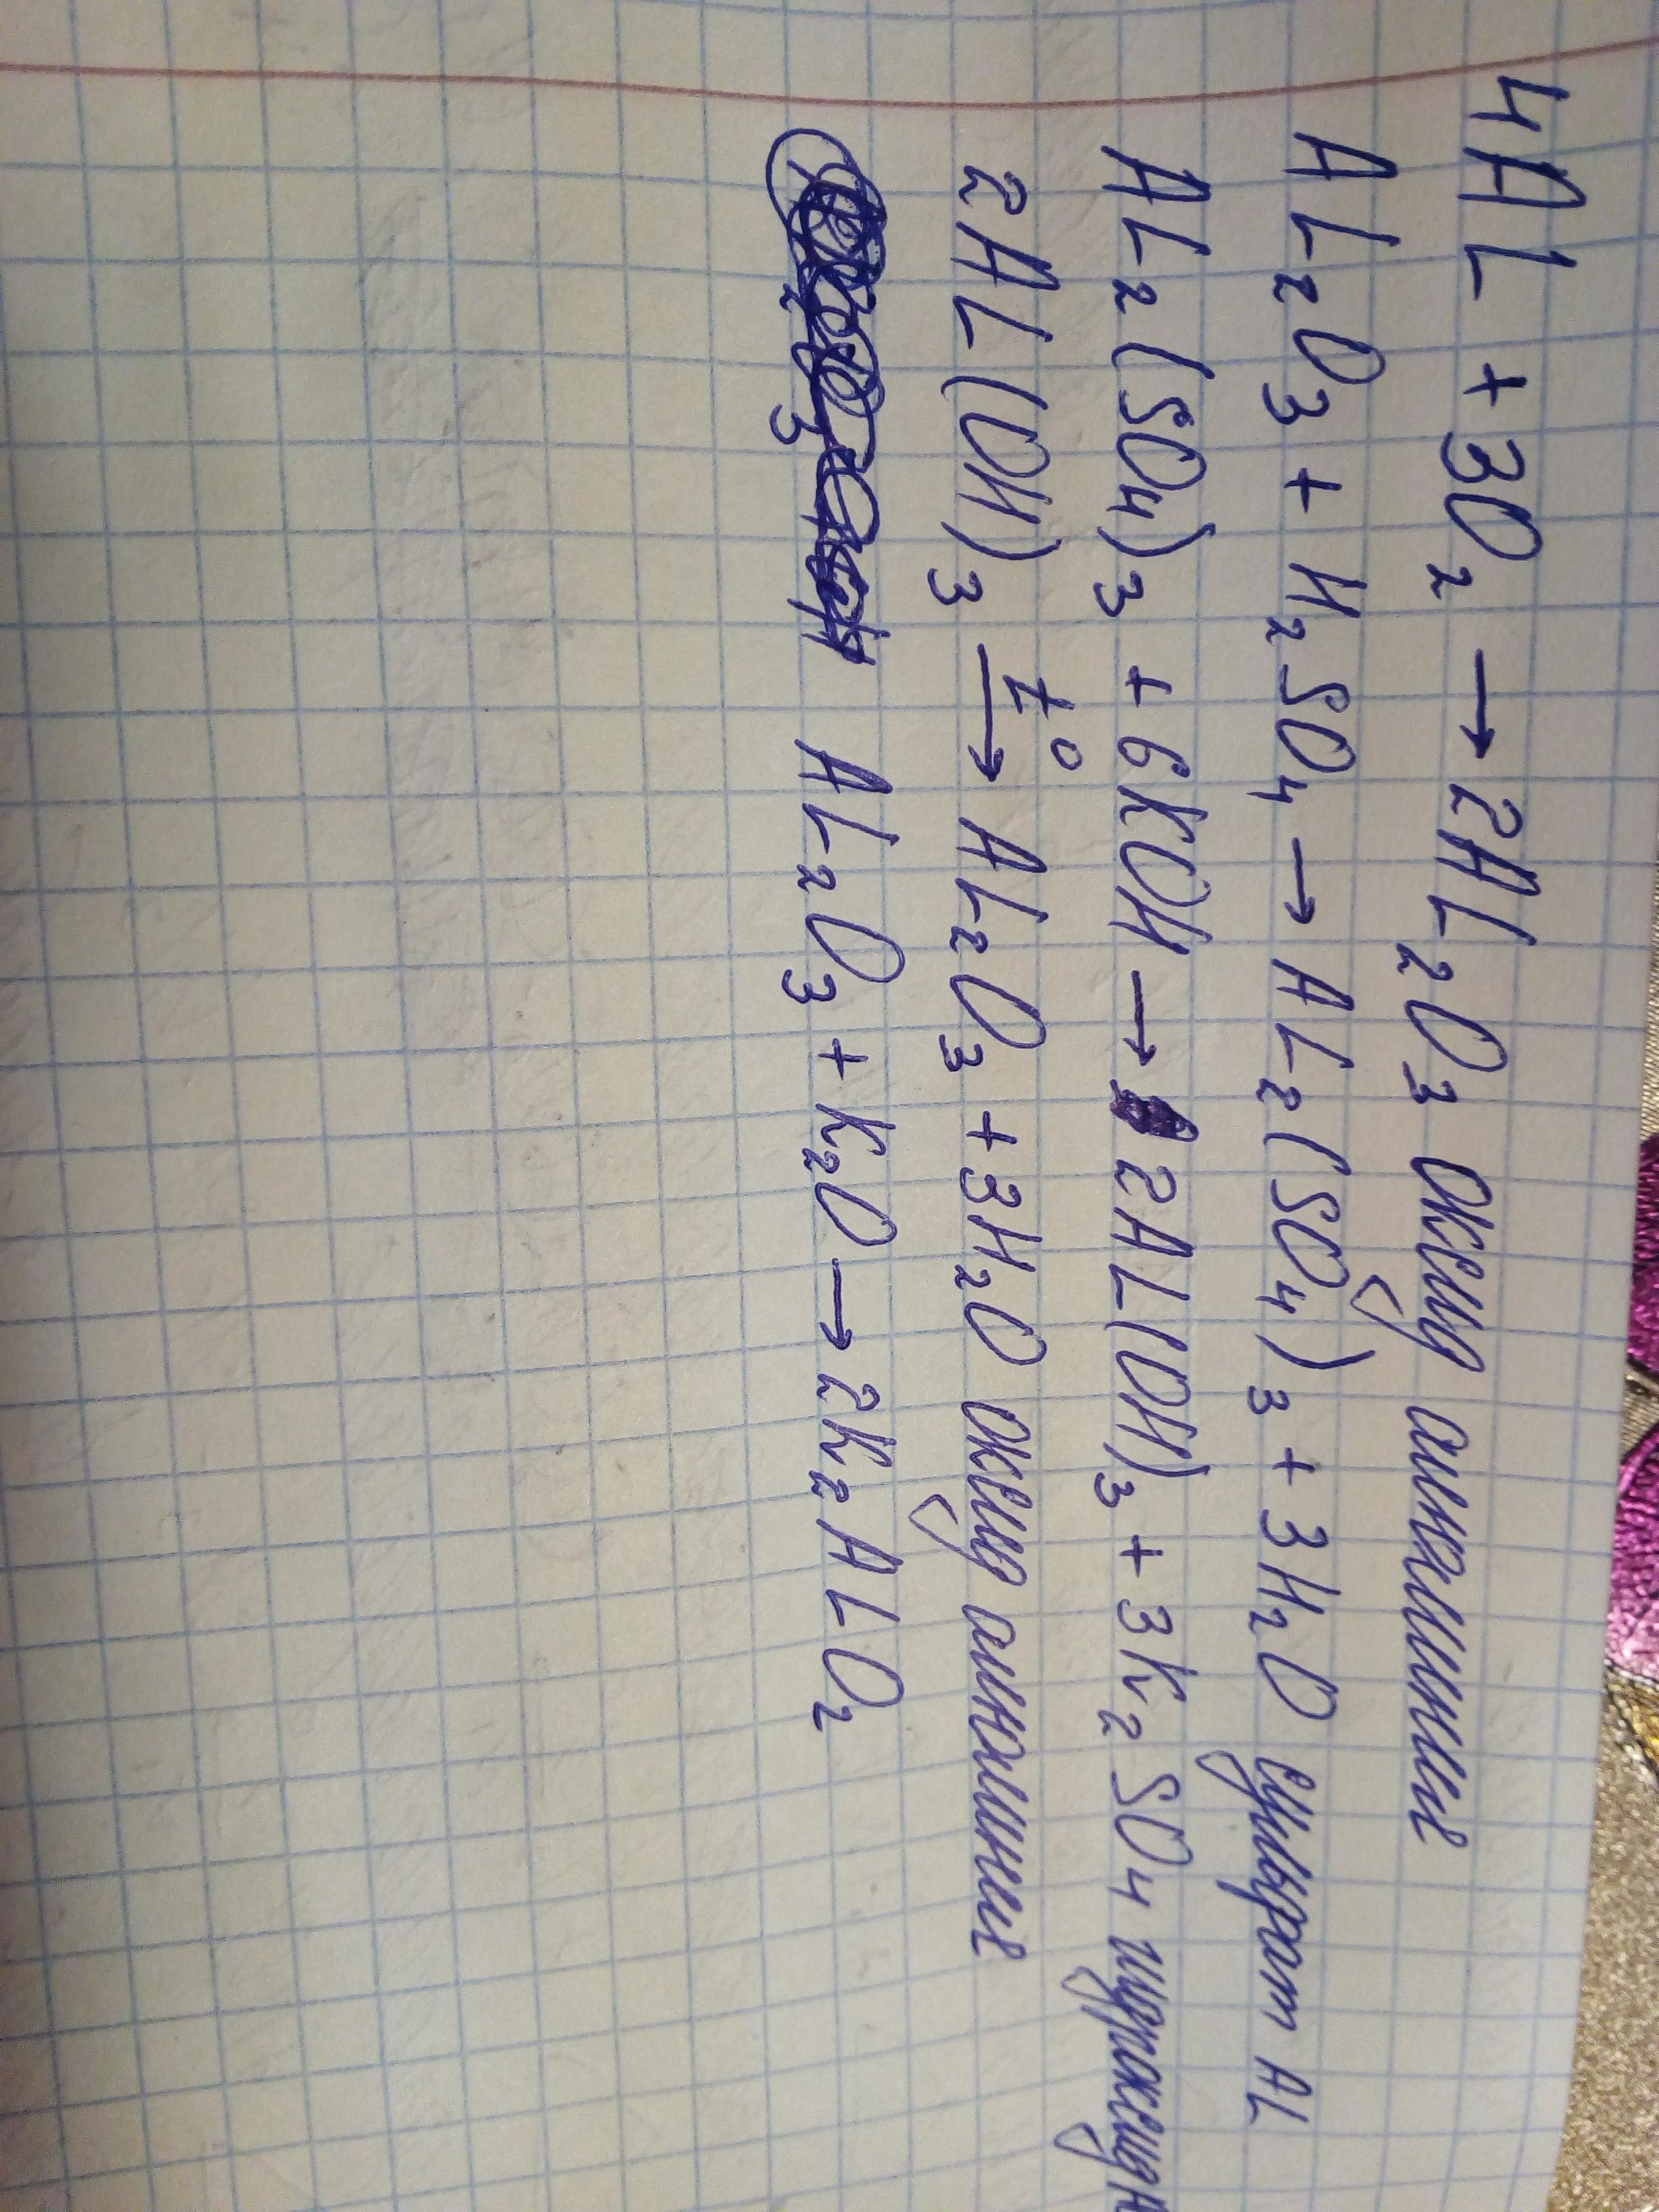 4AL + 3O₂ → 2AL₂O₃ оксид алюминия
AL₂O₃ + H₂SO₄ → AL₂(SO₄)₃ + 3H₂O сульфат AL
AL₂(SO₄)₃ + 6KOH → 2AL(OH)₃ + 3K₂SO₄ гидроксид A
2AL(OH)₃ t° → AL₂O₃ + 3H₂O оксид алюминия
AL₂O₃ + K₂O → 2K₂ALO₂